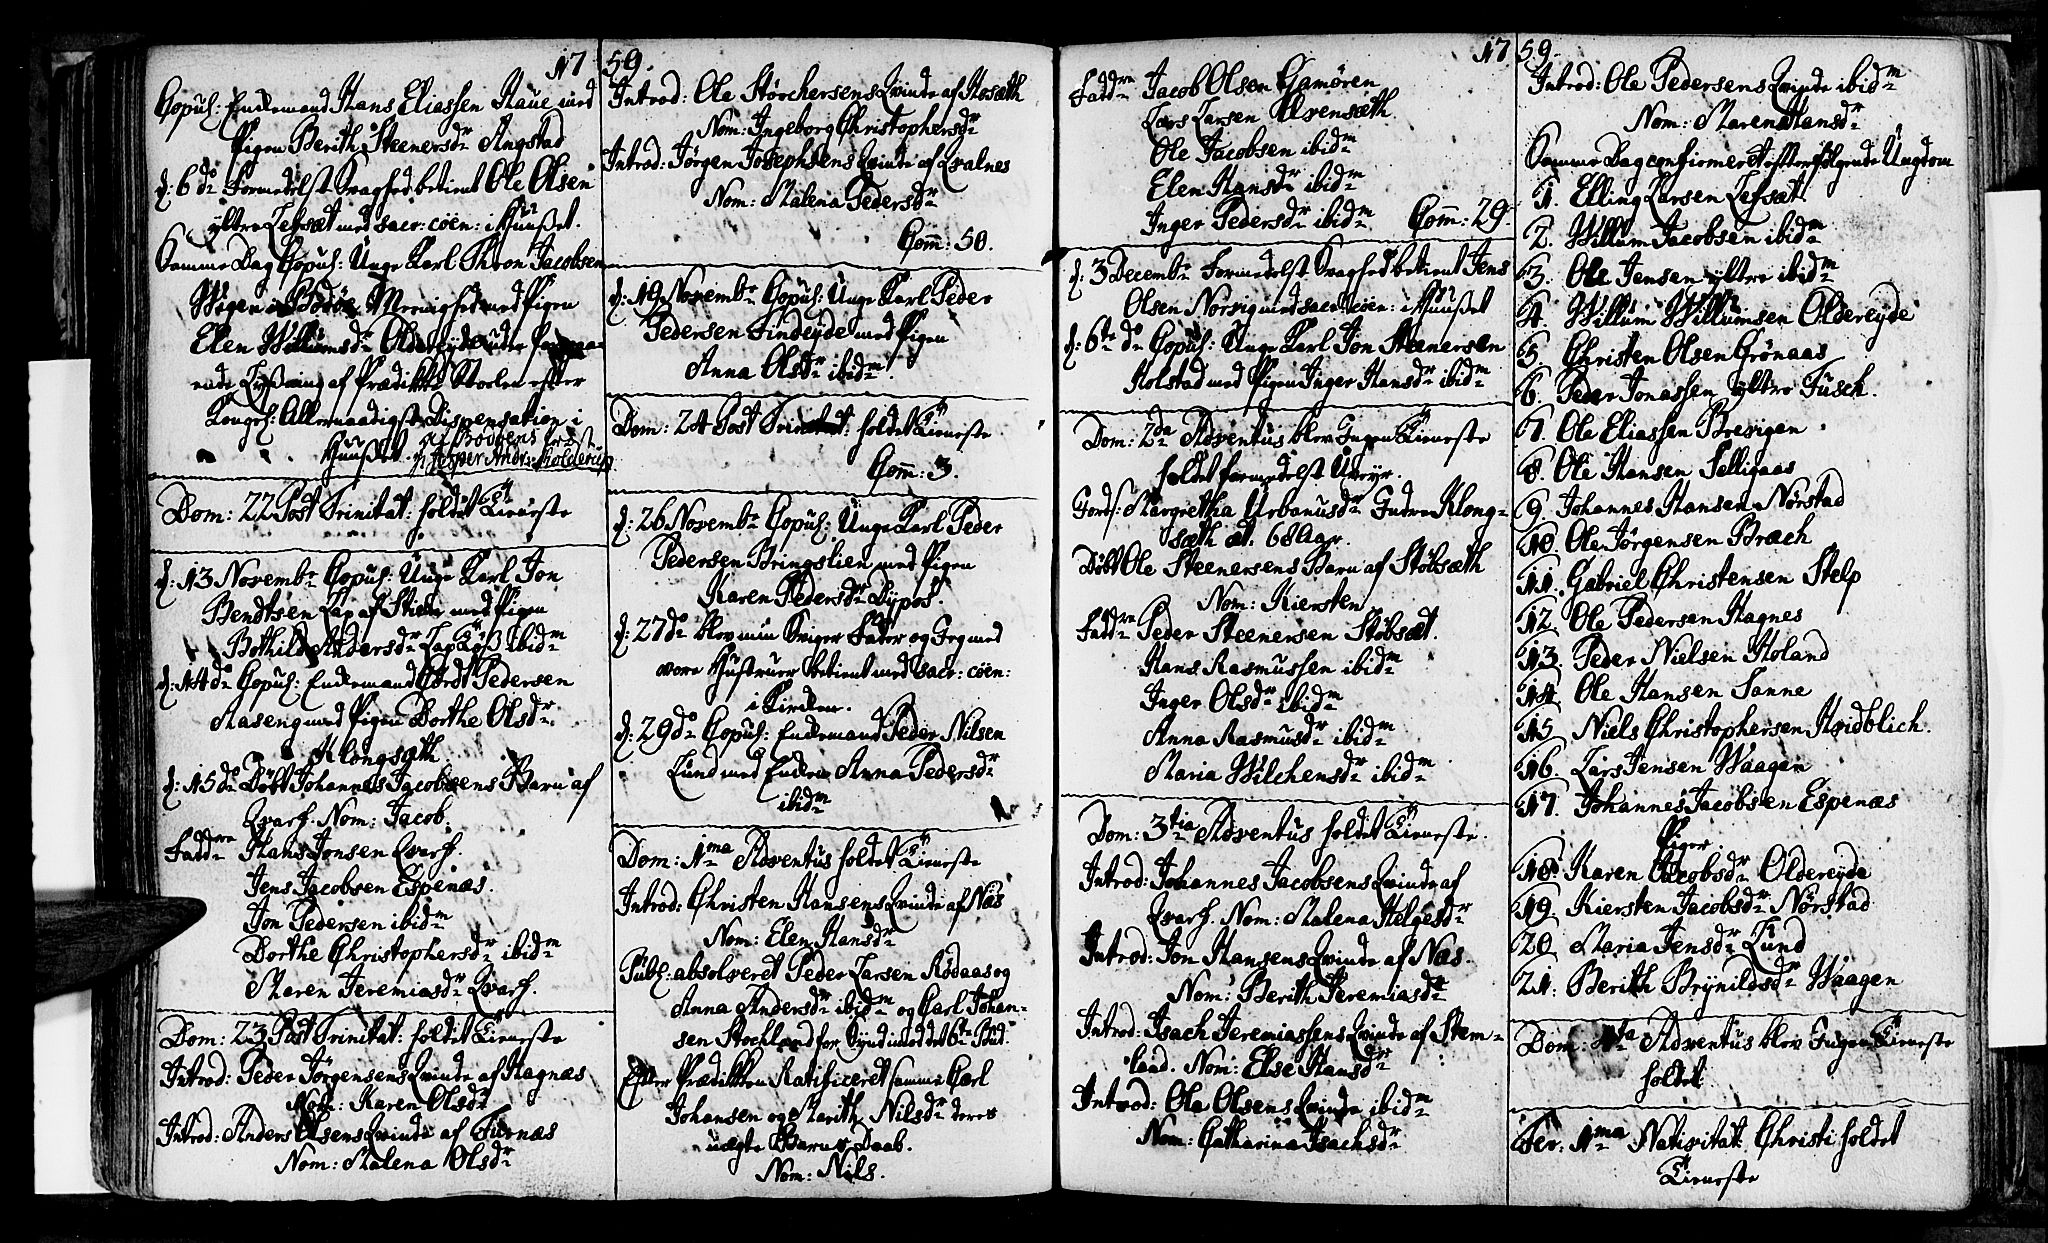 1759.
Copul: Enckemand Hans Eliassen Haue med
Pigen Berith Steenersdr Angstad
d: 6 do Formedelst Svaghed betient Ole Olsen
yttre Lefsæt med sacr: cöen: i Huuset.
Samme Dag Copul: Unge Karl Thron Jacobsen
Wigen i Bodöe Menighed med Pigen
Elen Willumsdr Oldereyde uden
Lysning af Prædikke Stoelen efter
Kongel: Allernaadigste Dispensation i
Huuset
Dom: 22 Post Trinitat: holdet Tieneste
d: 13 Novembr Copul: Unge Karl Jon
Bendtsen Lap af med Pigen
Bothild Andersdr Lap ibidm
d: 14 do Copul: Enckemand Cordt Pedersen
Aaseng med Pigen Dorthe Olsdr
Klongsæth
d: 15 do Döbt Johannes Jacobsens Barn af
Qvarf. Nom: Jacob.
Faddre Hans Jonsen Qvarf.
Jens Jacobsen Espenæs.
Jon Pedersen ibidm
Dorthe Christophersdr ibidm
Maren Jeremiasdr Qvarf.
Dom: 23 Post Trinitat: holdet Tieneste
Introd: Peder Jörgensens Qvinde af Hagnæs
Nom: Karen Olsdr
Introd: Anders Olsens Qvinde af Furnæs
Nom: Malena Olsdr
Introd: Ole Störchersens Qvinde af Hosæth
Nom: Ingeborg Christophersdr
Introd: Jörgen Josephsens Qvinde af Qvalnes
Nom: Malena Pedersdr
Com: 50.
d: 19 Novembr Copul: Unge Karl Peder
Pedersen Findeyde med Pigen
Anna Olsdr ibidm.
Dom: 24 Post Trinitat: holdet Tieneste
Com: 3.
d: 26 Novembr Copul: Unge Karl Peder
Pedersen Bringslien med Pigen
Karen Pedersdr Dypos.
d: 27 do blev min Sviger Fater og Jeg med
vore Hustruer betient med sacr: cöen:
i Kircken.
d: 29 do Copul: Enckemand Peder Nilsen
Lund med Encken Anna Pedersdr
ibidm
Dom: 1ma Adventus holdet Tieneste
Introd: Christen Hansens Qvinde af Næs
Nom: Elen Hansdr
Publ: absolveret Peder Larsen Rödaas og
Anna Andersdr ibidm og Carl Johan-
sen Stochland for Synd imod det 6te Bud.
Efter Prædikken Ratificeret samme Carl
Johansen og Marith Nilsdr deres
uægte Barns Daab.
Nom: Nils.
1759
Faddre Jacob Olsen Gamören
Lars Larsen Alvensæth
Ole Jacobsen ibidm
Elen Hansdr ibidm
Inger Pedersdr ibidm Com: 29.
d: 3 Decembr Formedelst Svaghed betient Jens
Olsen Norvig med sacr: cöen: i Huuset
d: 6te do Copul: Unge Karl Jon Steenersen
Holstad med Pigen Inger Hansdr ibidm
Dom: 2da Adventus blev Ingen Tieneste
holdet formedelst Uveyr.
Jords: Margretha Urbanusdr Indre Klong-
sæth æt. 68 Aar.
Döbt Ole Steenersens Barn af Stöbsæth
Nom: Kiersten
Faddre Peder Steenersen Stöbsæt.
Hans Rasmussen ibidm
Inger Olsdr ibidm
Anna Rasmusdr ibidm
Maria Wilchensdr ibidm
Dom: 3tia Adventus holdet Tieneste.
Introd: Johannes Jacobsens Qvinde af
Qvarf. Nom: Malena Helgesdr
Introd: Jon Hansens Qvinde af Næs.
Nom: Berith Jeremiasdr
Introd: Isach Jeremiassens Qvinde af Stem-
land. Nom: Else Hansdr
Introd: Ole Olsens Qvinde ibidm
Nom: Catharina Isachsdr
Introd: Ole Pedersens Qvinde ibidm
Nom: Maren Hansdr
Samme Dag confirmeret efterfölgende Ungdom
1. Elling Larsen Lefsæt.
2. Willum Jacobsen ibidm
3. Ole Jensen yttre ibidm
4. Willum Willumsen Oldereyde
5. Christen Olsen Grönaas
6. Peder Jonassen yttre Fusch.
7. Ole Eliassen Brevigen.
8. Ole Hansen Selligaas
9. Johannes Hansen Nörstad
10. Ole Jörgensen Bræch
11. Gabriel Christensen Stelp
12. Ole Pedersen Hagnes
13. Peder Nielsen Holand
14. Ole Hansen Sanne
15 Niels Christophersen Hvidblich.
16. Lars Jensen Waagen
17. Johannes Jacobsen Espenæs
Piger.
18. Karen Jacobsdr Oldereyde
19. Kiersten Jacobsdr Nörstad
20. Maria Jensdr Lund
21. Berith Brynildsdr Waagen
Dom: 4ta Adventus blev Ingen Tieneste
holdet
Fer: 1ma Nativitat: Christi holdet
Tieneste